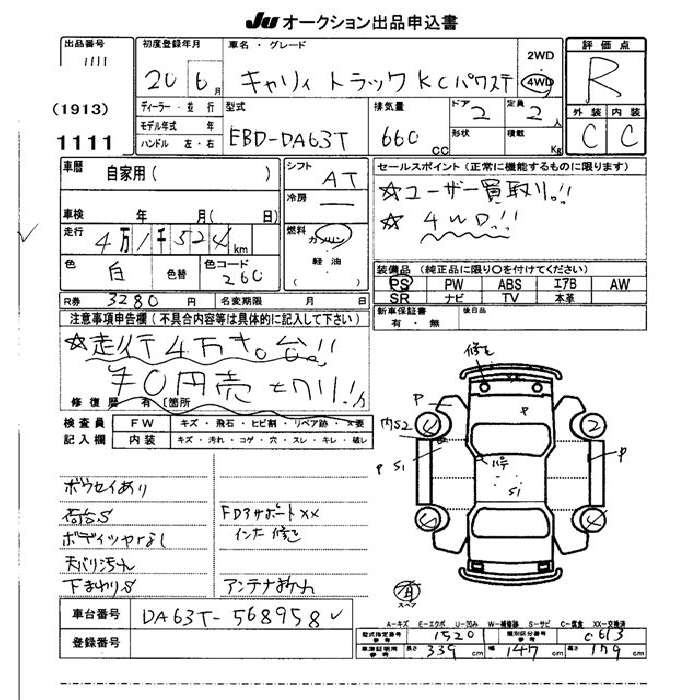 JU オークション出品申込書
出品番号
1111
(1913)
1111
初度登録年月
20 6月
車名・グレード
キャリィ トラック KC パワステ
2WD
4WD
評価点
R
ディーラー・並行
モデル年式 年
ハンドル 左・右
型式
EBD-DA63T
排気量
660 CC
ドア 2
形状
定員 2人
積載 Kg
外装 内装
C C
車暦 自家用( )
車検 年 月( 日)
走行 4万1千524km
色 白 色替
色コード 260
シフト AT
冷房 ―
燃料 ガソリン
軽油
セールスポイント(正常に機能するものに限ります)
☆ユーザー買取り!!
☆ 4WD!!
装備品(純正品に限り○を付けてください)
PS PW ABS エアB AW
SR ナビ TV 本革
R券 3280円 名変期限 月 日
新車保証書 有・無 後日品
注意事項申告欄(不具合内容等は具体的に記入して下さい)
☆走行4万キロ台!!
¥0円売切り!!
修復歴 有〔箇所
検査員 FW キズ・飛石・ヒビ割・リペア跡・X要
記入欄 内装 キズ・汚れ・コゲ・穴・スレ・キレ・破レ
ボウセイあり
荷台S
天バリ汚れ
下まわりS
FDアサポートXX
インナー修正
アンテナおれ
修正
P
内S2
P S1
パテ
S1
P
2
4
スペア
車台番号 DA63T-568958
登録番号
A=キズ E=エクボ U=凹み W=補修跡 S=サビ C=腐食 XX=交換済
型式指定番号 参考 1520 類別区分番号 参考 C613
車検証明用 参考 長さ 339cm 幅 147cm 高さ 179cm